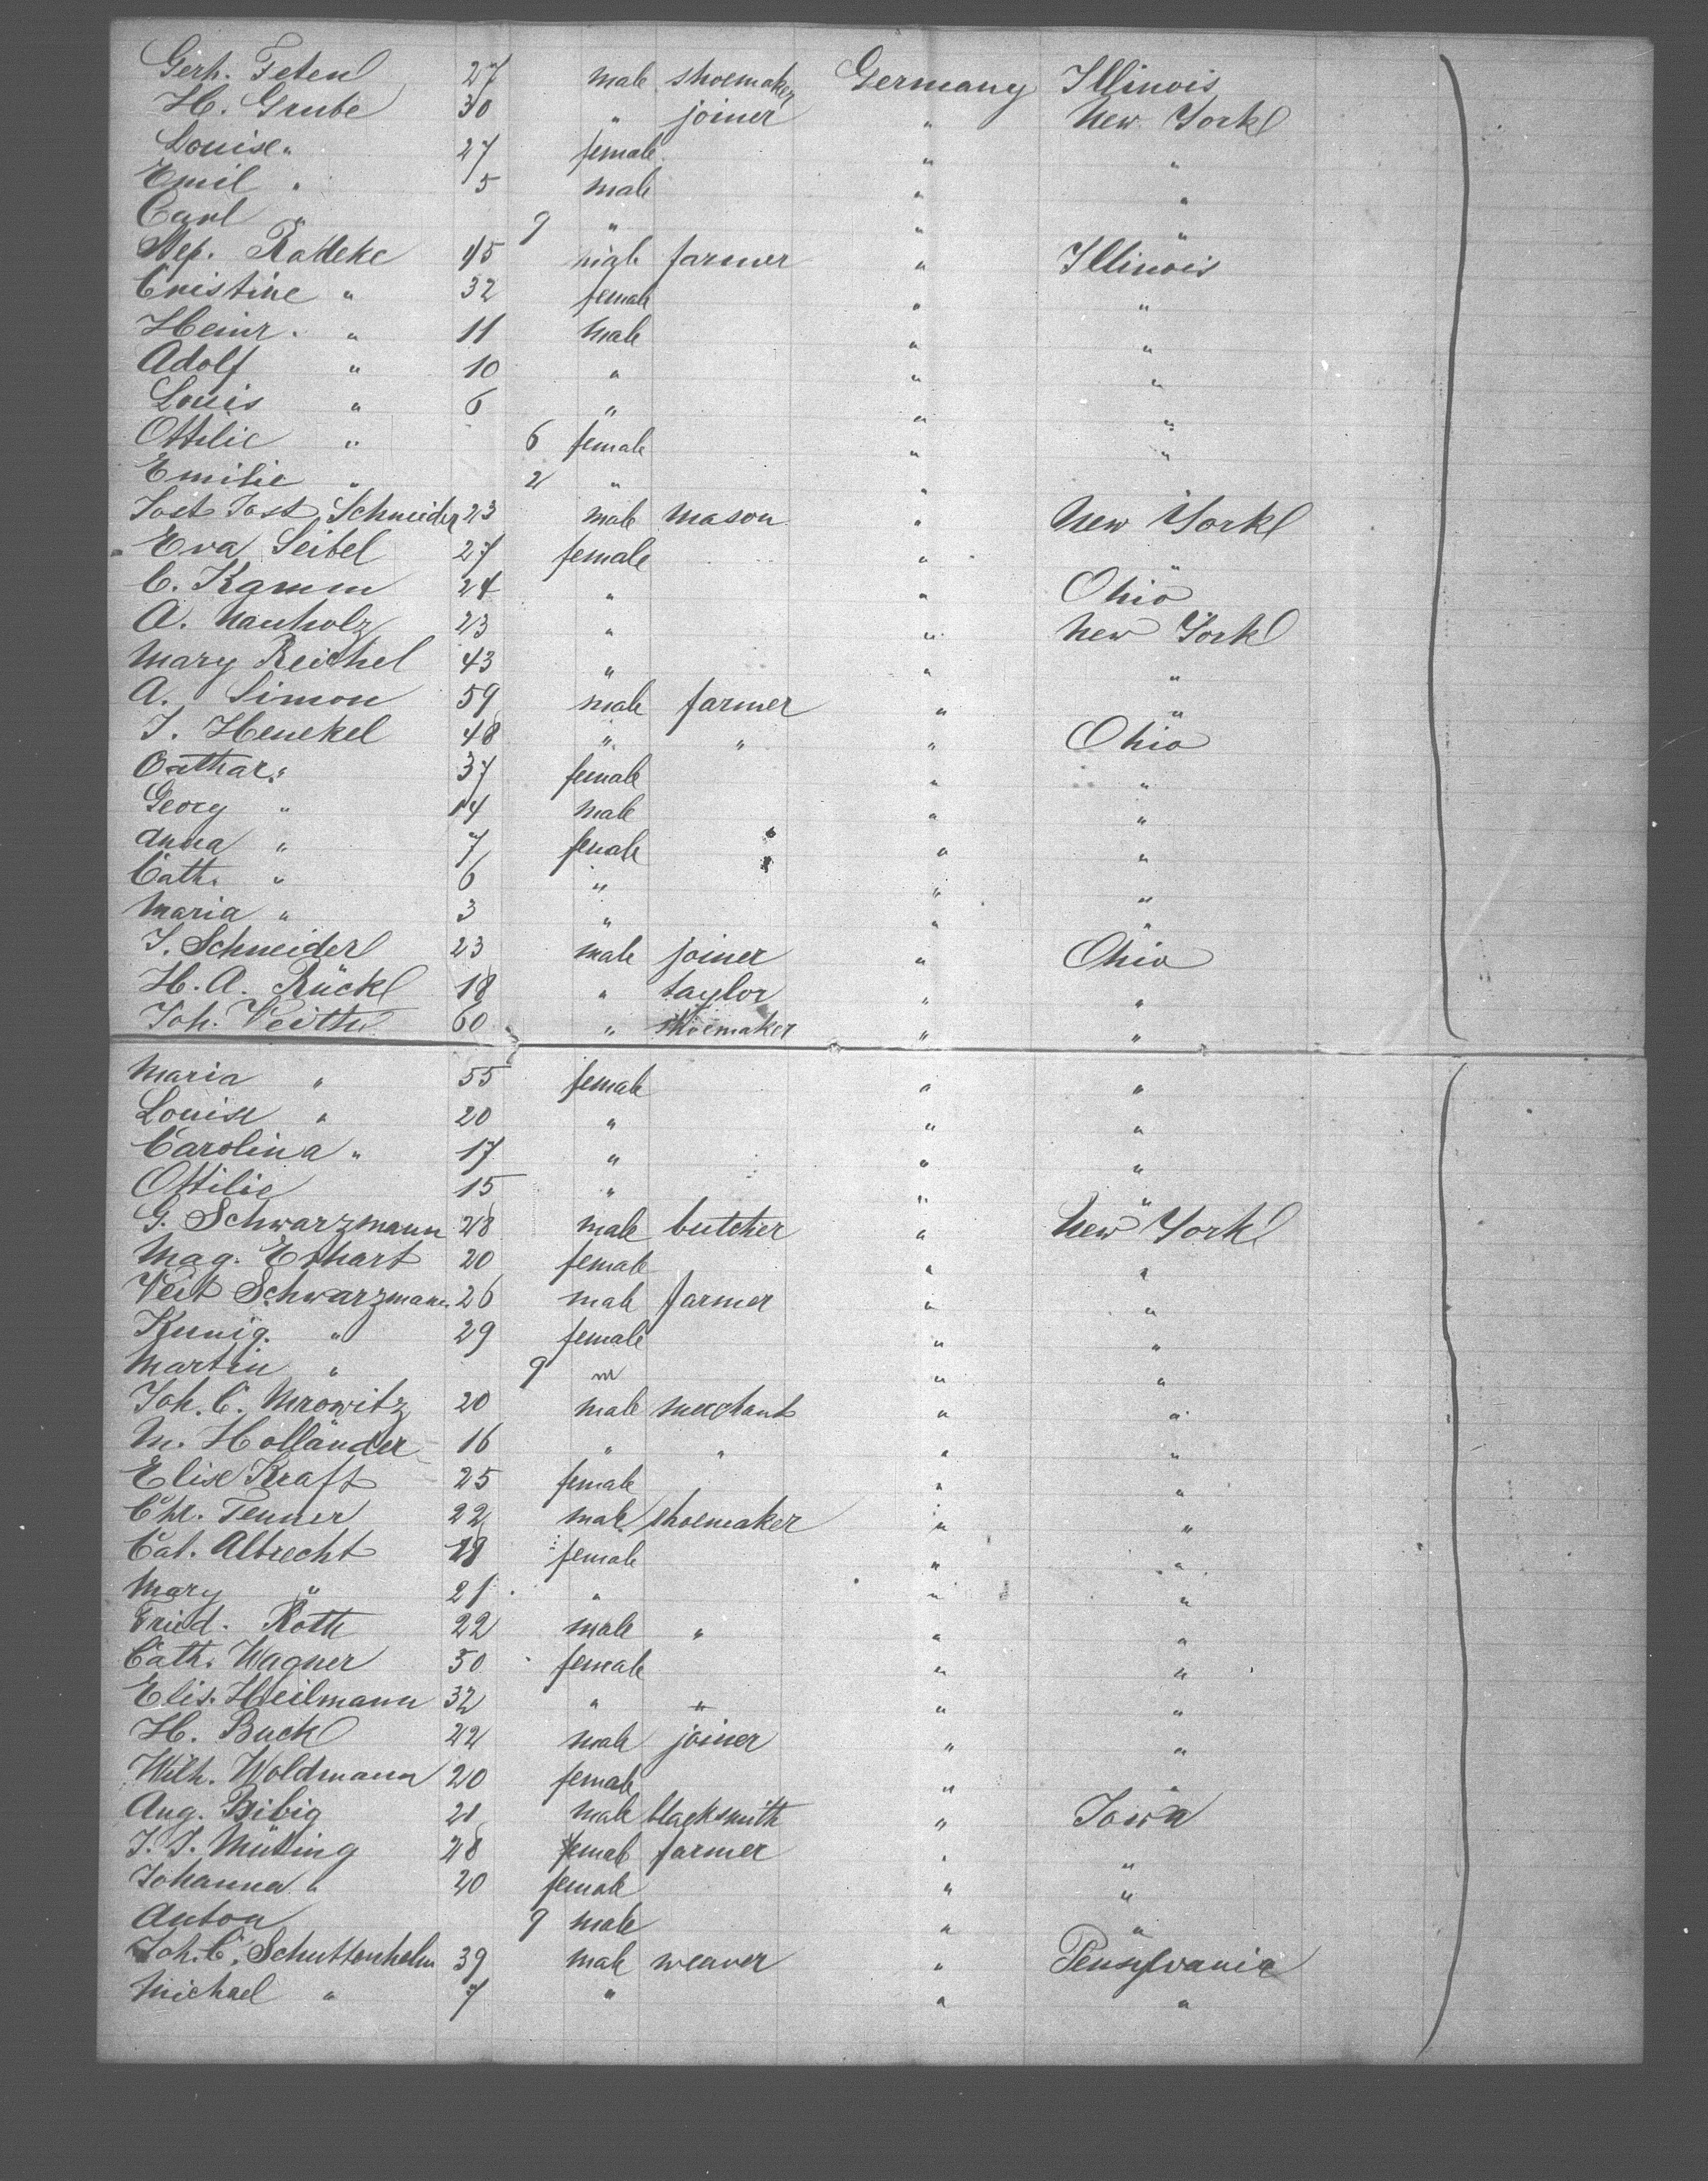 Gerh. Feten 27 male shoemaker Germany Illinois
H. Grube 30 " joiner " New York
Louise " 27 female " "
Emil " 5 male " "
Carl " 9 " " "
Step. Ratteke 45 male farmer " Illinois
Cristine " 32 female " "
Heinr. " 11 male " "
Adolf " 10 " " "
Louis " 6 " " "
Ottilie " 6 female " "
Emilie " 2 " " "
Jost Schneider 23 male mason " New York
Eva Seibel 27 female " "
C. Kamm 24 " " Ohio
A. Nauholz 23 " " New York
Mary Reichel 43 " " "
A. Simon 59 male farmer " "
J. Henekel 48 " " " Ohio
Cathar. " 37 female " "
Georg " 14 male " "
Anna " 7 female " "
Cath. " 6 " " "
Maria " 3 " " "
J. Schneider 23 male joiner " Ohio
H. A. Rückl 18 " taylor " "
Joh. Veith 60 " shoemaker " "
Maria " 55 female " "
Louise " 20 " " "
Carolina " 17 " " "
Ottilie 15 " " "
G. Schwarzmann 28 male butcher " New York
Mag. Erhart 20 female " "
Veit Schwarzmann 26 male farmer " "
Kunig. " 29 female " "
Martin " 9 m " "
Joh. C. Mrowitz 20 male merchant " "
M. Holländer 16 " " " "
Elise Kraft 25 female " "
Chr. Tenner 22 male shoemaker " "
Cat. Albrecht 28 female " "
Mary " 21 " " "
Fried. Roth 22 male " " "
Cath. Wagner 50 female " "
Elis. Heilmann 32 " " " "
H. Buck 22 male joiner " "
Wilh. Woldmann 20 female " "
Aug. Bibig 21 male blacksmith " Iowa
J. J. Müting 28 female farmer " "
Johanna " 20 female " "
Anton 9 male " "
Joh. C. Schuttenhelm 39 male weaver " Pensylvania
Michael " 7 " " "